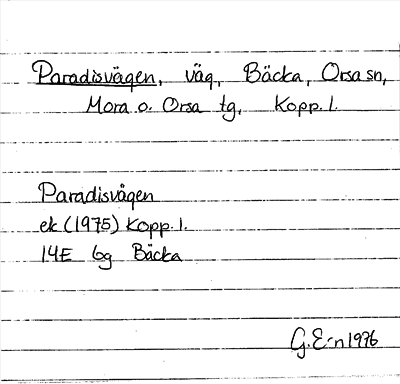 Paradisvägen, väg, Bäcka, Orsa sn,
Mora o. Orsa tg, Kopp. l.
Paradisvägen
ek (1975) Kopp. l.
14E 6g Bäcka
G. E-n 1976